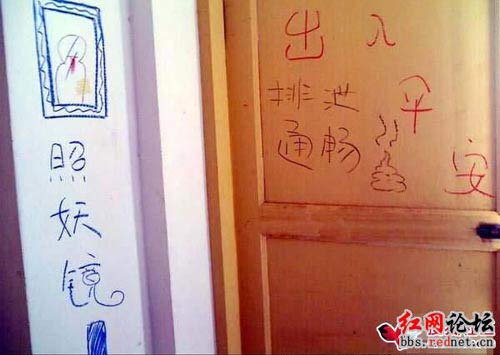 照妖镜
出入平安
排泄
通畅
红网论坛
bbs.rednet.cn